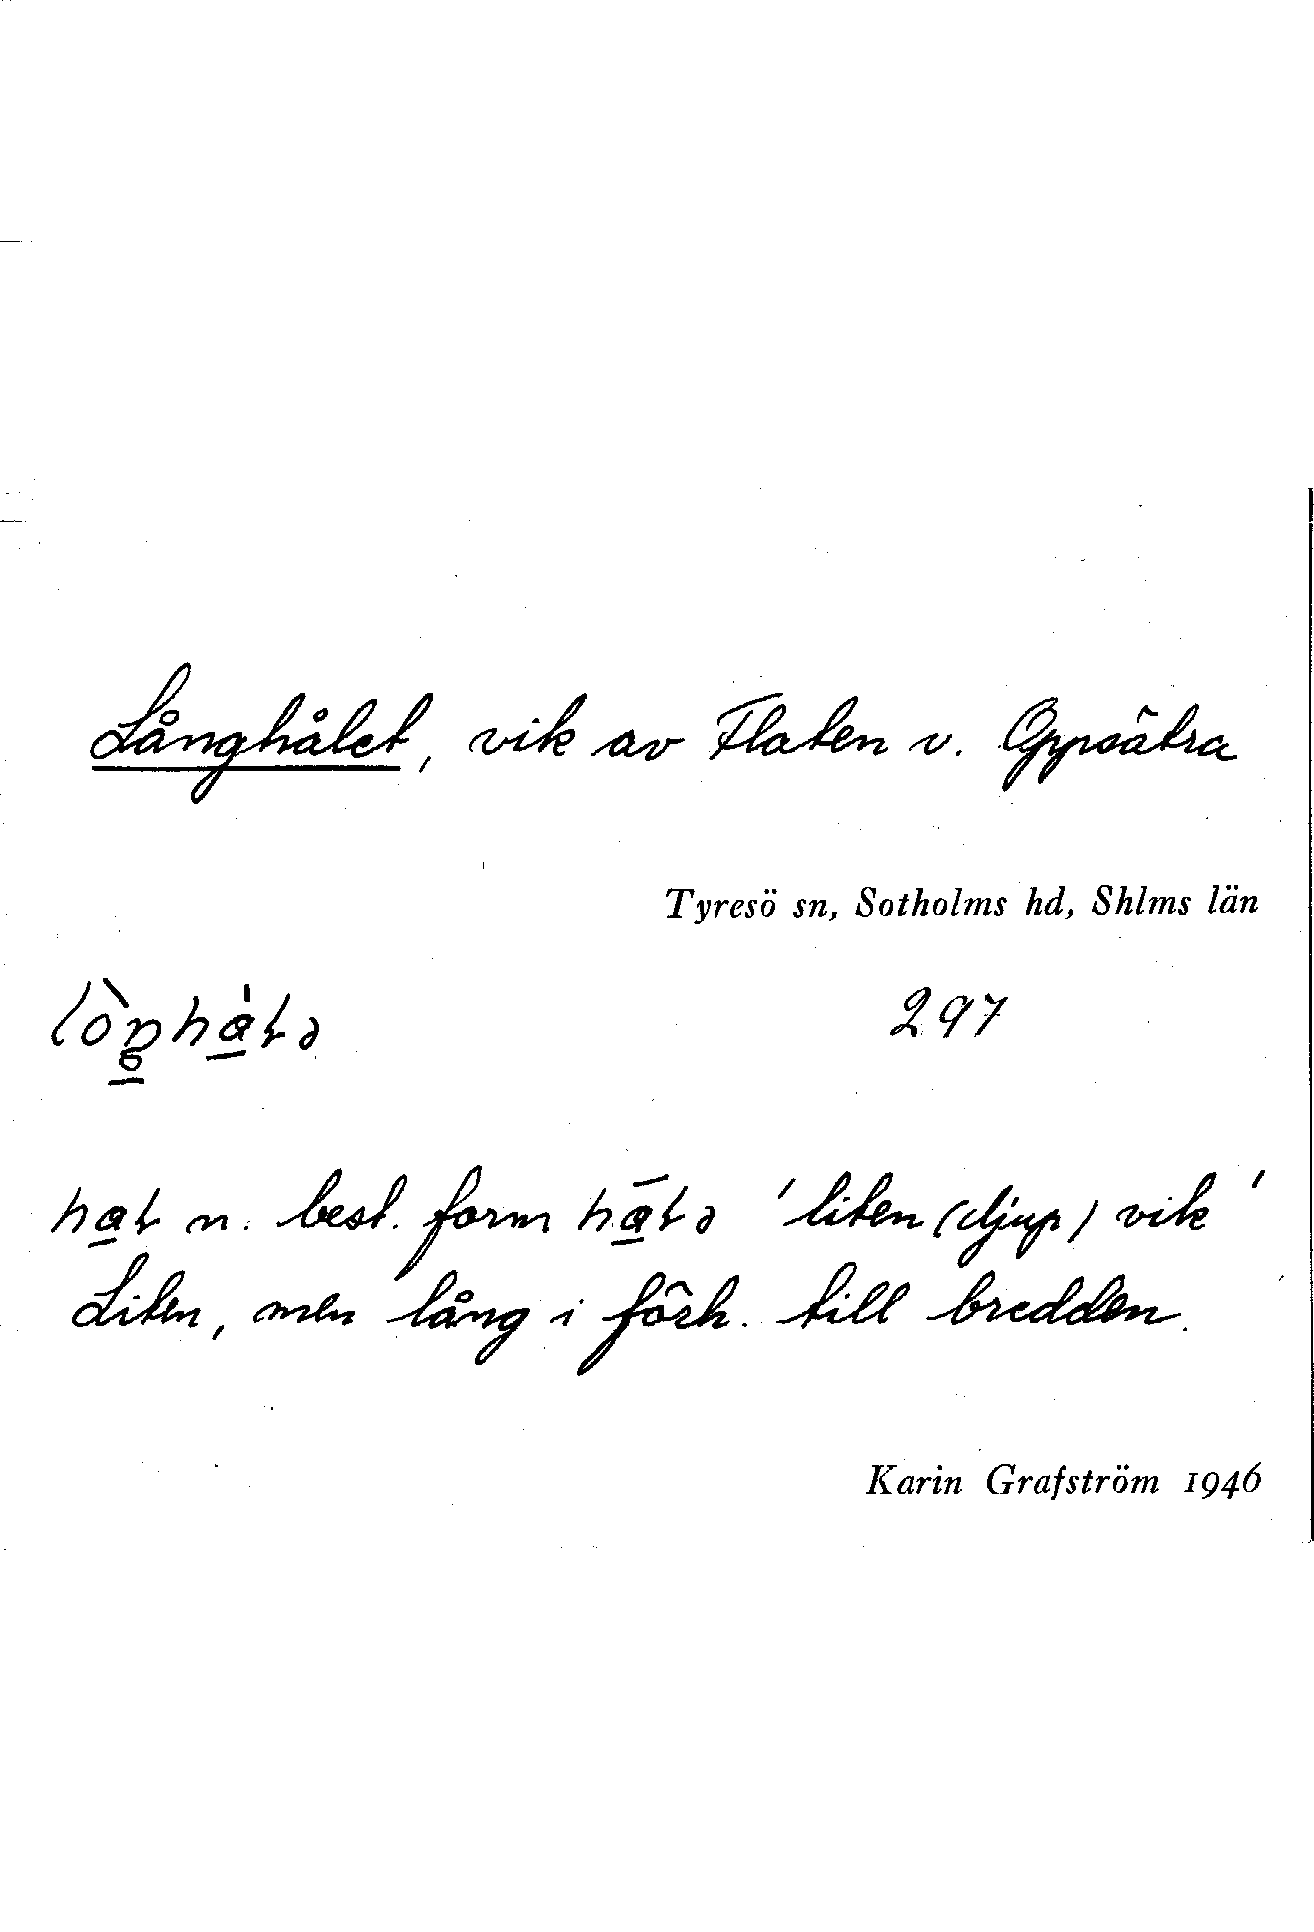 Långhålet, vik av Flaten v. Uppsätra
Tyresö sn, Sotholms hd, Shlms län
297
n. best. form 'liten (djup) vik'
Liten, men lång i förh. till bredden.
Karin Grafström 1946